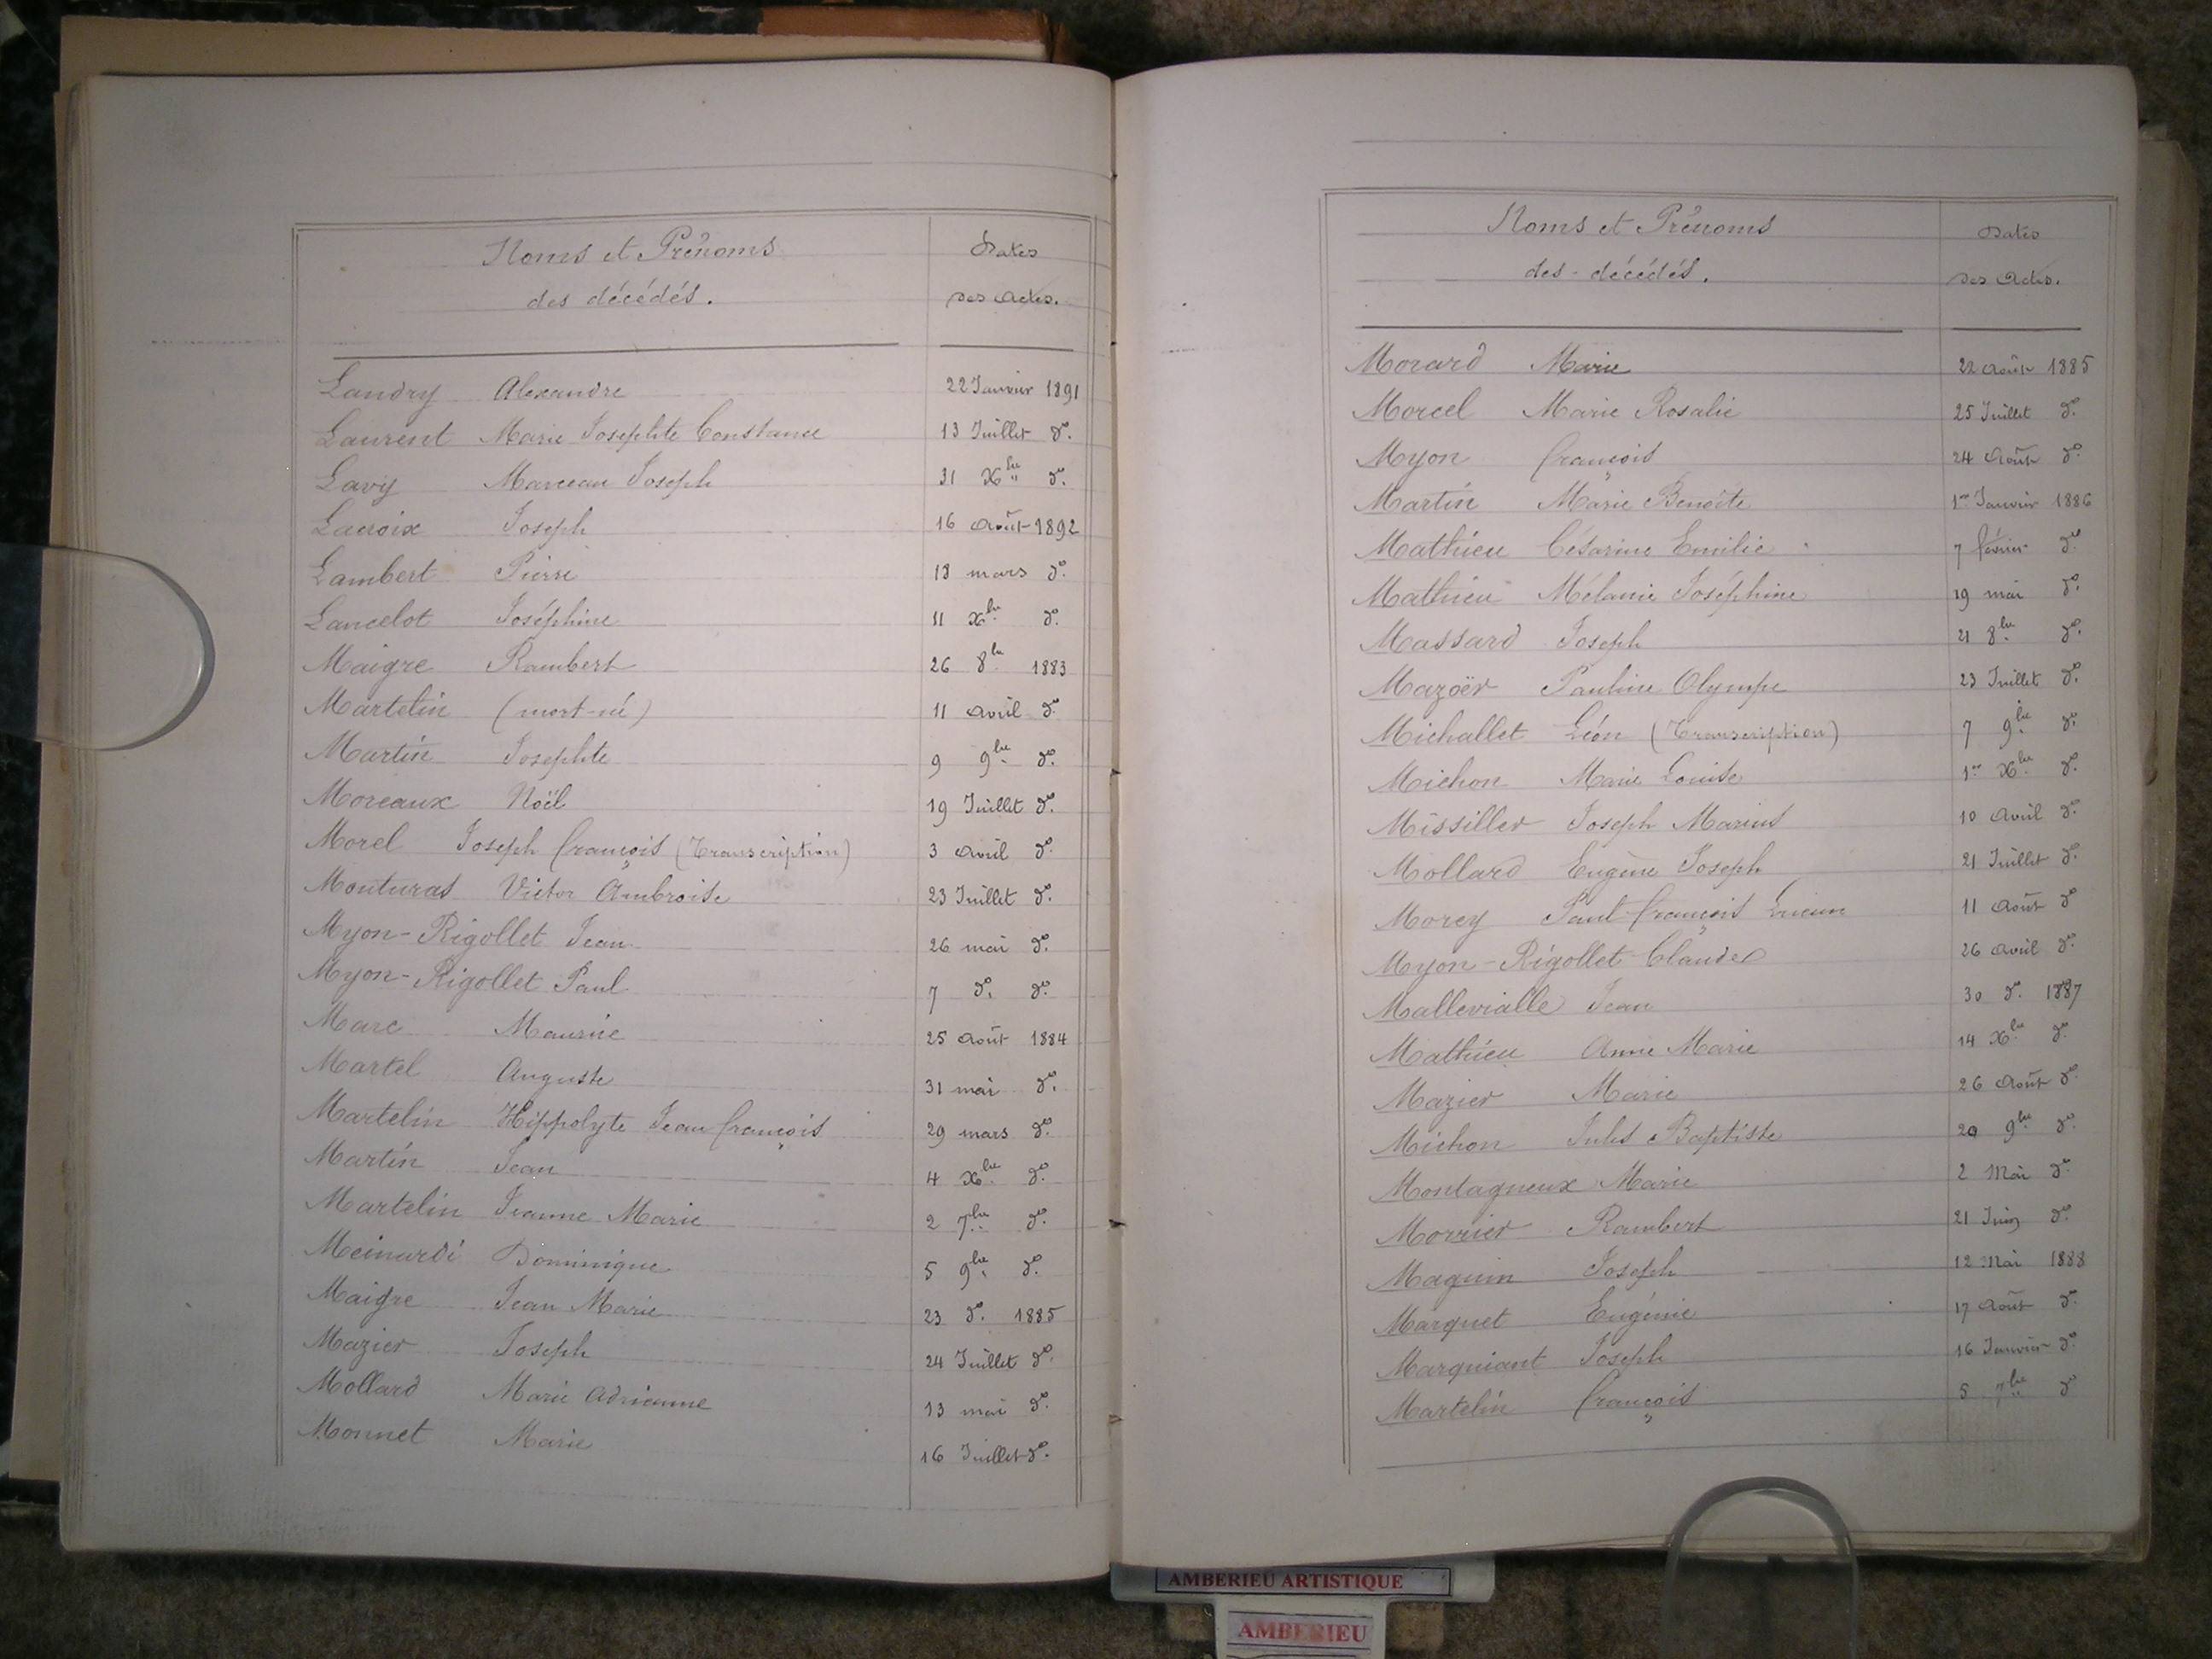 Noms et Prénoms
des décédés.
Dates
des actes.
Landry Alexandre 22 Janvier 1891
Laurent Marie Josephte Constance 13 Juillet do.
Lavy Marceau Joseph 31 Xbre do.
Lacroix Joseph 16 août 1892
Lambert Pierre 18 mars do.
Lancelot Joséphine 11 Xbre do.
Maigre Rambert 26 8bre 1883
Martelin (mort-né) 11 avril do.
Martin Josephte 9 9bre do.
Moreaux Noël 19 Juillet do.
Morel Joseph françois (Transcription) 3 avril do.
Monturas Victor Ambroise 23 Juillet do.
Myon-Rigollet Jean 26 mai do.
Myon-Rigollet Paul 7 do. do.
Marc Maurice 25 août 1884
Martel Auguste 31 mai do.
Martelin Hippolyte Jean françois 29 mars do.
Martin Jean 4 Xbre do.
Martelin Jeanne Marie 2 7bre do.
Meinardi Dominique 5 9bre do.
Maigre Jean Marie 23 do. 1885
Mazier Joseph 24 Juillet do.
Mollard Marie Adrienne 13 mai do.
Monnet Marie 16 Juillet do.
Noms et Prénoms
des décédés.
Dates
des actes.
Morard Marie 22 août 1885
Morcel Marie Rosalie 25 Juillet do.
Myon françois 24 août do.
Martin Marie Benoîte 1er Janvier 1886
Mathieu Césarine Emilie 7 février do.
Mathieu Mélanie Joséphine 19 mai do.
Massard Joseph 21 8bre do.
Mazoër Pauline Olympe 23 Juillet do.
Michallet Léon (Transcription) 7 9bre do.
Michon Marie Louise 1er Xbre do.
Missiller Joseph Marius 10 avril do.
Mollard Eugène Joseph 21 Juillet do.
Morey Paul françois Lucien 11 août do
Myon-Rigollet Claude 26 avril do.
Mallevialle Jean 30 do. 1887
Mathieu Anne Marie 14 Xbre do.
Mazier Marie 26 août do.
Michon Jules Baptiste 20 9bre do.
Montagneux Marie 2 Mai do.
Morrier Rambert 21 Juin do.
Maguin Joseph 12 Mai 1888
Marquet Eugénie 17 août do.
Marquiant Joseph 16 Janvier do.
Martelin françois 5 7bre do
AMBERIEU ARTISTIQUE
AMBERIEU